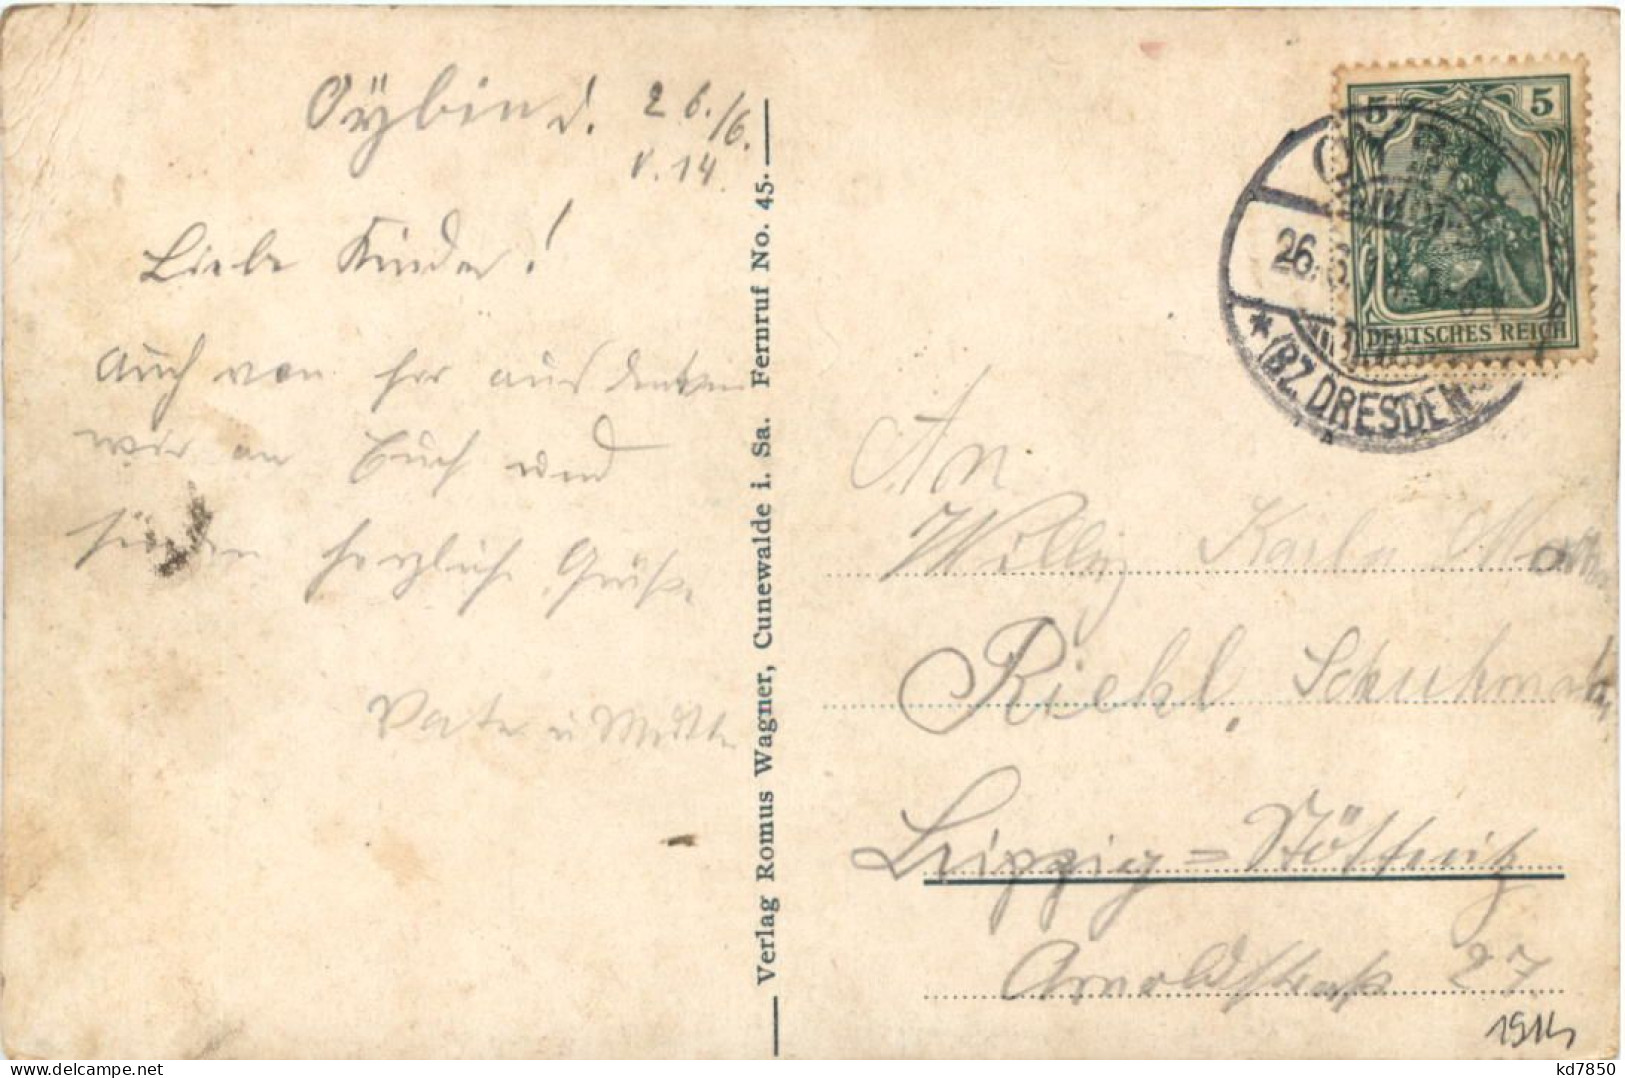 Oÿbin d. 26./6.
14.
Liebe Kinder!
Auch von hir aus denken
wir an Euch und
herzliche Grüße
Vater u Mutter
Verlag Romus Wagner, Cunewalde i. Sa. Fernruf No. 45.
5 5
DEUTSCHES REICH
OYBIN
26.6.
* (BZ. DRESDEN)
An
Willy Karla
Riehl, Schuhmacher
Leipzig=Stötteritz
Arnoldstraße 27
1914
kd7850